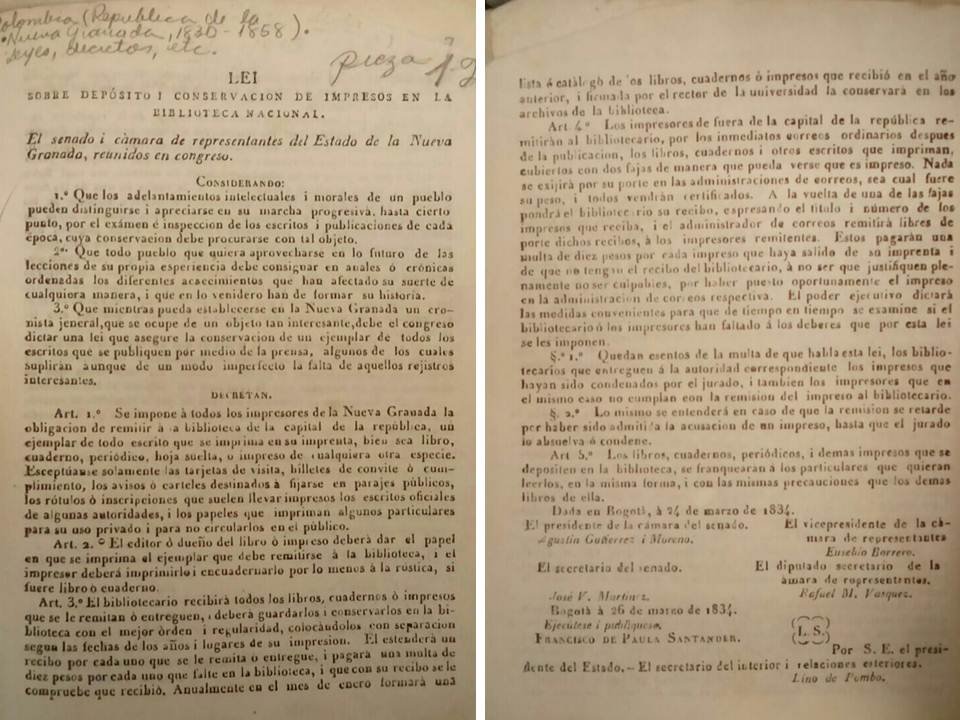 Colombia (Republica de la
Nueva Granada, 1830-1858).
Leyes, decretos, etc.
pieza 12
LEI
SOBRE DEPÓSITO I CONSERVACION DE IMPRESOS EN LA
BIBLIOTECA NACIONAL.
El senado i càmara de representantes del Estado de la Nueva
Granada, reunidos en congreso.
CONSIDERANDO:
1.º Que los adelantamientos intelectuales i morales de un pueblo
pueden distinguirse i apreciarse en su marcha progresiva, hasta cierto
punto, por el exámen é inspeccion de los escritos i publicaciones de cada
época, cuya conservacion debe procurarse con tal objeto.
2º. Que todo pueblo que quiera aprovecharse en lo futuro de las
lecciones de su propia esperiencia debe consignar en anales ó crónicas
ordenadas los diferentes acaecimientos que han afectado su suerte de
cualquiera manera, i que en lo venidero han de formar su historia.
3.º Que mientras pueda establecerse en la Nueva Granada un cro-
nista jeneral, que se ocupe de un objeto tan interesante, debe el congreso
dictar una lei que asegure la conservacion de un ejemplar de todos los
escritos que se publiquen por medio de la prensa, algunos de los cuales
suplirán aunque de un modo imperfecto la falta de aquellos rejistros
interesantes.
DECRETAN.
Art. 1.º Se impone à todos los impresores de la Nueva Granada la
obligacion de remitir à la biblioteca de la capital de la república, un
ejemplar de todo escrito que se imprima en su imprenta, bien sea libro,
cuaderno, periódico, hoja suelta, o impreso de cualquiera otra especie.
Esceptúanse solamente las tarjetas de visita, billetes de convite ó cum-
plimiento, los avisos ó carteles destinados à fijarse en parajes públicos,
los rótulos ó inscripciones que suelen llevar impresos los escritos oficiales
de algunas autoridades, i los papeles que impriman algunos particulares
para su uso privado i para no circularlos en el público.
Art. 2.º El editor ó dueño del libro ó impreso deberá dar el papel
en que se imprima el ejemplar que debe remitirse à la biblioteca, i el
impresor deberá imprimirlo i encuadernarlo por lo menos à la rústica, si
fuere libro ò cuaderno.
Art. 3.º El bibliotecario recibirá todos los libros, cuadernos ò impresos
que se le remitan ò entreguen, i deberá guardarlos i conservarlos en la bi-
blioteca con el mejor òrden i regularidad, colocàndolos con separacion
segun las fechas de los años i lugares de su impresion. El estenderá un
recibo por cada uno que se le remita ò entregue, i pagará una multa de
diez pesos por cada uno que falte en la biblioteca, i que con su recibo se le
compruebe que recibió. Anualmente en el mes de enero formará una
lista ó catálogo de los libros, cuadernos ó impresos que recibió en el año
anterior, i firmada por el rector de la universidad la conservará en los
archivos de la biblioteca.
Art. 4.º Los impresores de fuera de la capital de la república re-
mitirán al bibliotecario, por los inmediatos correos ordinarios despues
de la publicacion, los libros, cuadernos i otros escritos que impriman,
cubiertos con dos fajas de manera que pueda verse que es impreso. Nada
se exijirá por su porte en las administraciones de correos, sea cual fuere
su peso, i todos vendrán certificados. A la vuelta de una de las fajas
pondrá el bibliotecario su recibo, espresando el titulo i número de los
impresos que reciba, i el administrador de correos remitirá libres de
porte dichos recibos, à los impresores remitentes. Estos pagarán una
multa de diez pesos por cada impreso que haya salido de su imprenta i
de que no tengan el recibo del bibliotecario, à no ser que justifiquen ple-
namente no ser culpables, por haber puesto oportunamente el impreso
en la administracion de correos respectiva. El poder ejecutivo dictará
las medidas convenientes para que de tiempo en tiempo se examine si el
bibliotecario ó los impresores han faltado á los deberes que por esta lei
se les imponen.
§. 1.º Quedan esentos de la multa de que habla esta lei, los biblio-
tecarios que entreguen á la autoridad correspondiente los impresos que
hayan sido condenados por el jurado, i tambien los impresores que en
el mismo caso no cumplan con la remision del impreso al bibliotecario.
§. 2.º Lo mismo se entenderá en caso de que la remision se retarde
por haber sido admitida la acusacion de un impreso, hasta que el jurado
lo absuelva ó condene.
Art 5.º Los libros, cuadernos, periódicos, i demas impresos que se
depositen en la biblioteca, se franquearan á los particulares que quieran
leerlos, en la misma forma, i con las mismas precauciones que los demas
libros de ella.
Dada en Bogotá, à 24 de marzo de 1834.
El presidente de la cámara del senado.
Agustin Gutierrez i Moreno.
El vicepresidente de la cà-
mara de representantes
Eusebio Borrero.
El secretario del senado.
José V. Martinez
El diputado secretario de la
càmara de representantes.
Rafael M. Vasquez.
Bogotà à 26 de marzo de 1834.
Ejecútese i publiquese.
FRANCISCO DE PAULA SANTANDER.
(L. S.)
Por S. E. el presi-
dente del Estado.—El secretario del interior i relaciones esteriores.
Lino de Pombo.